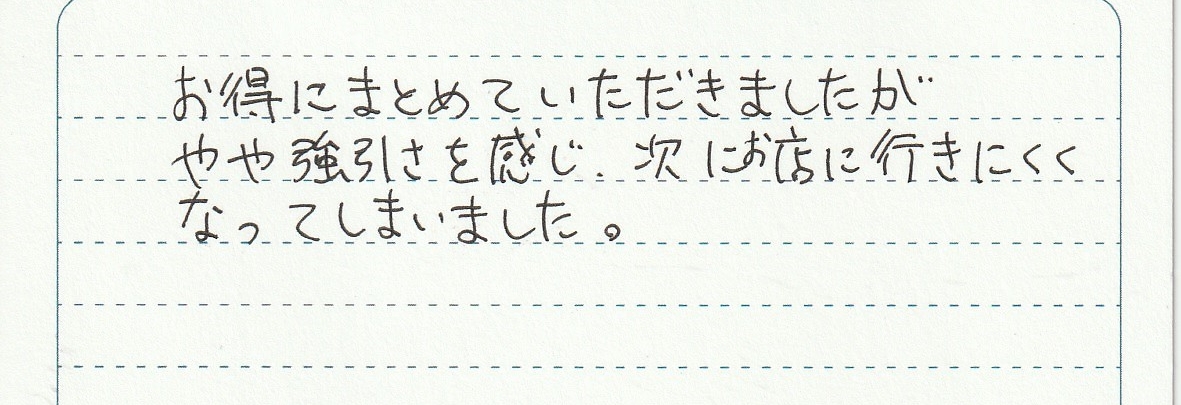 お得にまとめていただきましたが
やや強引さを感じ、次にお店に行きにくく
なってしまいました。